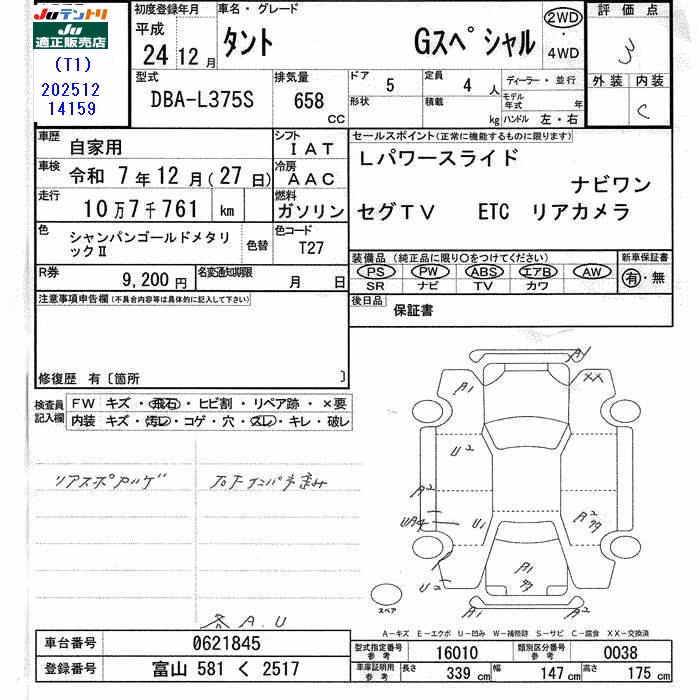 JUテントリ
JU
適正販売店
(T1)
202512
14159
初度登録年月
平成
24 12 月
車名・グレード
タント Gスペシャル
2WD
・
4WD
評価点
3
外装 内装
C
型式
DBA-L375S
排気量
658
CC
ドア 5
形状
定員 4 人
積載 kg
ディーラー・並行
モデル年式 年
ハンドル 左・右
車歴 自家用
シフト IAT
車検 令和 7 年 12 月 (27 日)
冷房 AAC
走行 10万7千761 km
燃料 ガソリン
色 シャンパンゴールドメタリックⅡ
色替
色コード T27
R券 9,200 円
名変通知期限 月 日
セールスポイント(正常に機能するものに限ります)
Lパワースライド
ナビワン
セグTV ETC リアカメラ
装備品 (純正品に限り○をつけてください)
新車保証書
PS PW ABS エアB AW
SR ナビ TV カワ
有・無
後日品
保証書
注意事項申告欄(不具合内容等は具体的に記入して下さい)
修復歴 有〔箇所 〕
検査員記入欄
FW キズ・飛石・ヒビ割・リペア跡・×要
内装 キズ・汚レ・コゲ・穴・スレ・キレ・破レ
リアスポハゲ
各 A.U
A1
A1
XX
U2
A2
U1
A2
A1
U2
A1
A1
スペア
A-キズ E-エクボ U-凹み W-補修跡 S-サビ C-腐食 XX-交換済
車台番号 0621845
登録番号 富山 581 く 2517
型式指定番号 参考 16010
類別区分番号 参考 0038
車庫証明用 参考
長さ 339 cm
幅 147 cm
高さ 175 cm